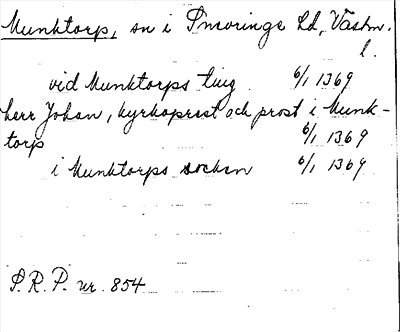 Munktorp, sn i Snevringe hd, Västm.
l.
vid Munktorps ting 6/1 1369
herr Johan, kyrkoprest och prost i Munk-
torp 6/1 1369
i Munktorps socken 6/1 1369
S.R.P. nr. 854